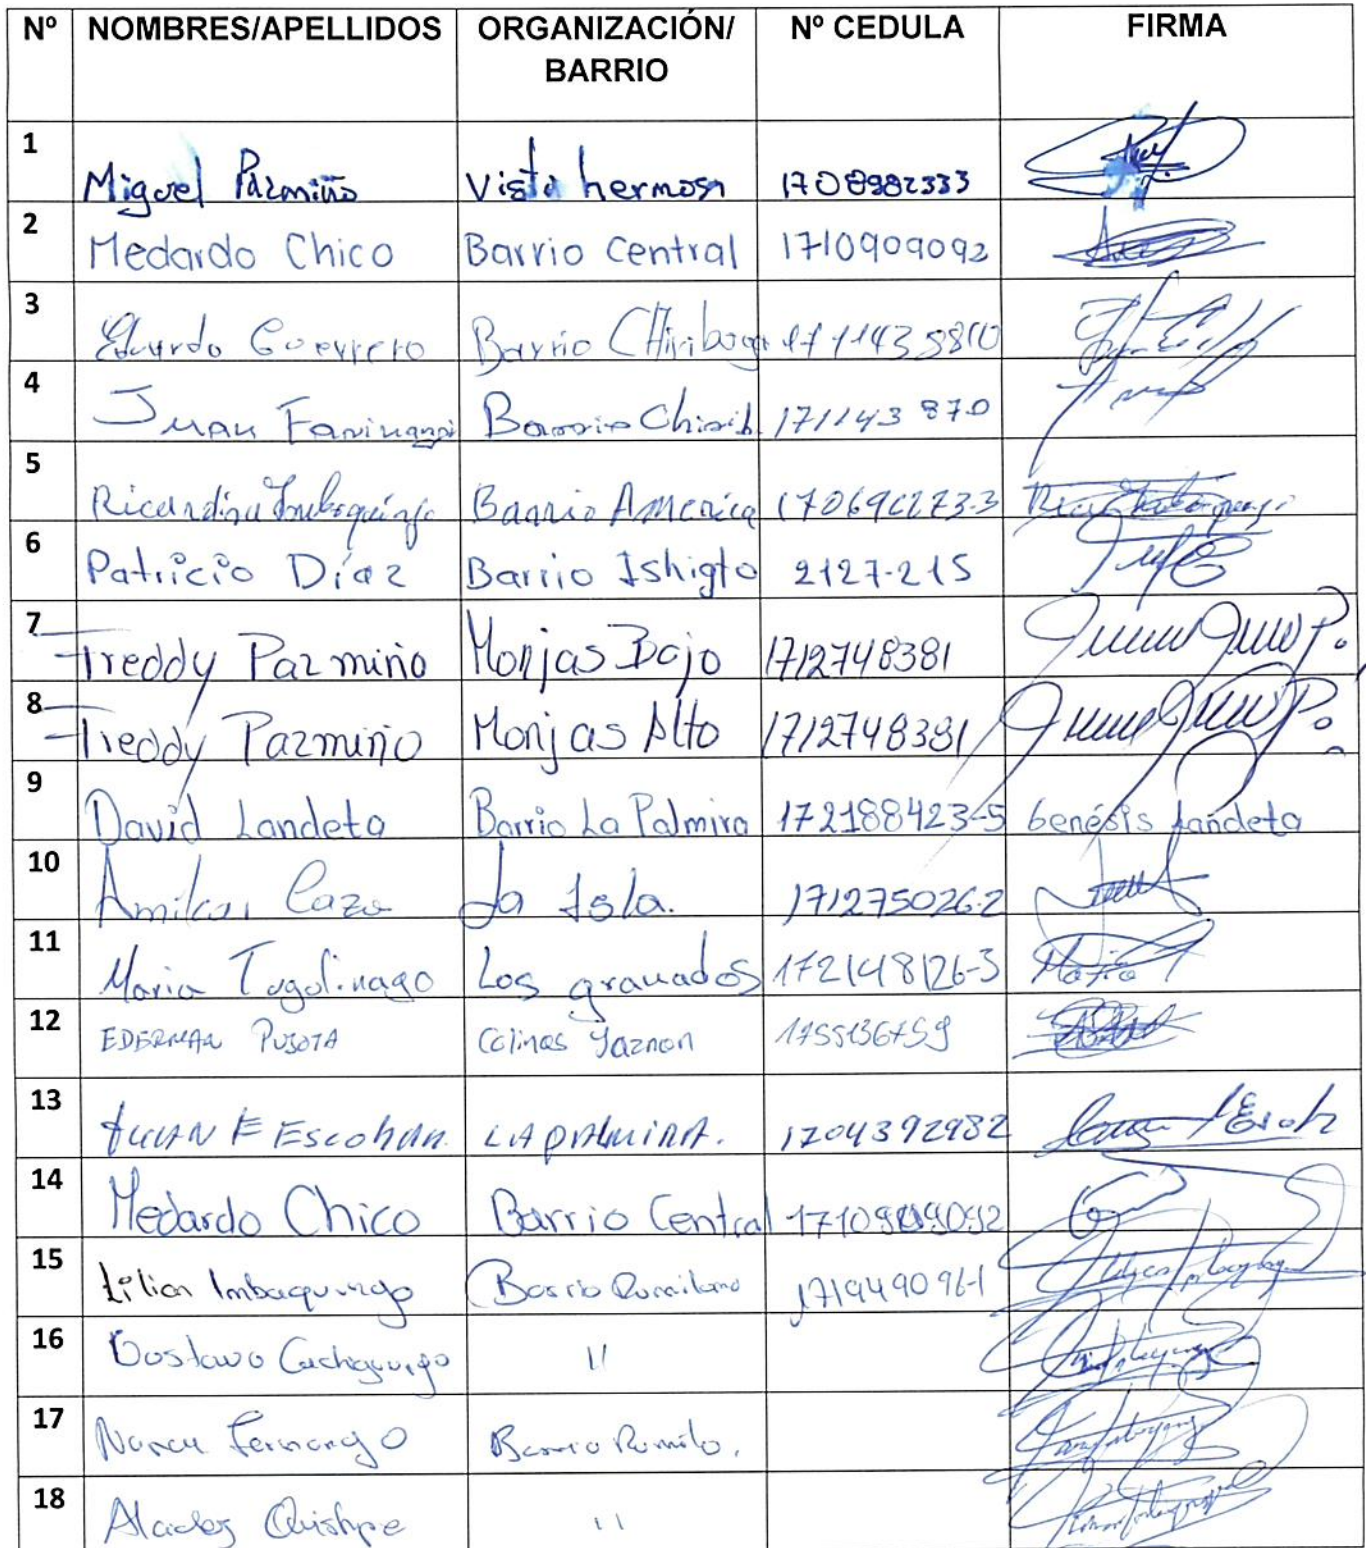 Nº NOMBRES/APELLIDOS ORGANIZACIÓN/ Nº CEDULA FIRMA
BARRIO
1 Miguel Pazmiño Vista hermosa 1708982333
2 Medardo Chico Barrio Central 1710909092
3 Eduardo Guerrero Barrio Chiriboga
4 Juan Barrio Chirib. 171143870
5 Ricardina Imbaquingo Barrio America
6 Patricio Díaz Barrio Ishigto 2127-215
7 Freddy Pazmiño Monjas Bajo 1712748381
8 Freddy Pazmiño Monjas Alto 1712748381
9 David Landeta Barrio La Palmira 172188423-5 Genésis Landeta
10 Amilcar Caza La Isla. 171275026-2
11 Maria Togolinago Los granados 172148126-3 Maria
12 EDERMAN PUJOTA Colinas
13 JUAN E Escobar. LA PALMIRA. 1704392982
14 Medardo Chico Barrio Central
15 Lilian Imbaquingo Barrio 171949096-1
16 Gostavo 11
17 Barrio
18 Alcides Quishpe 11